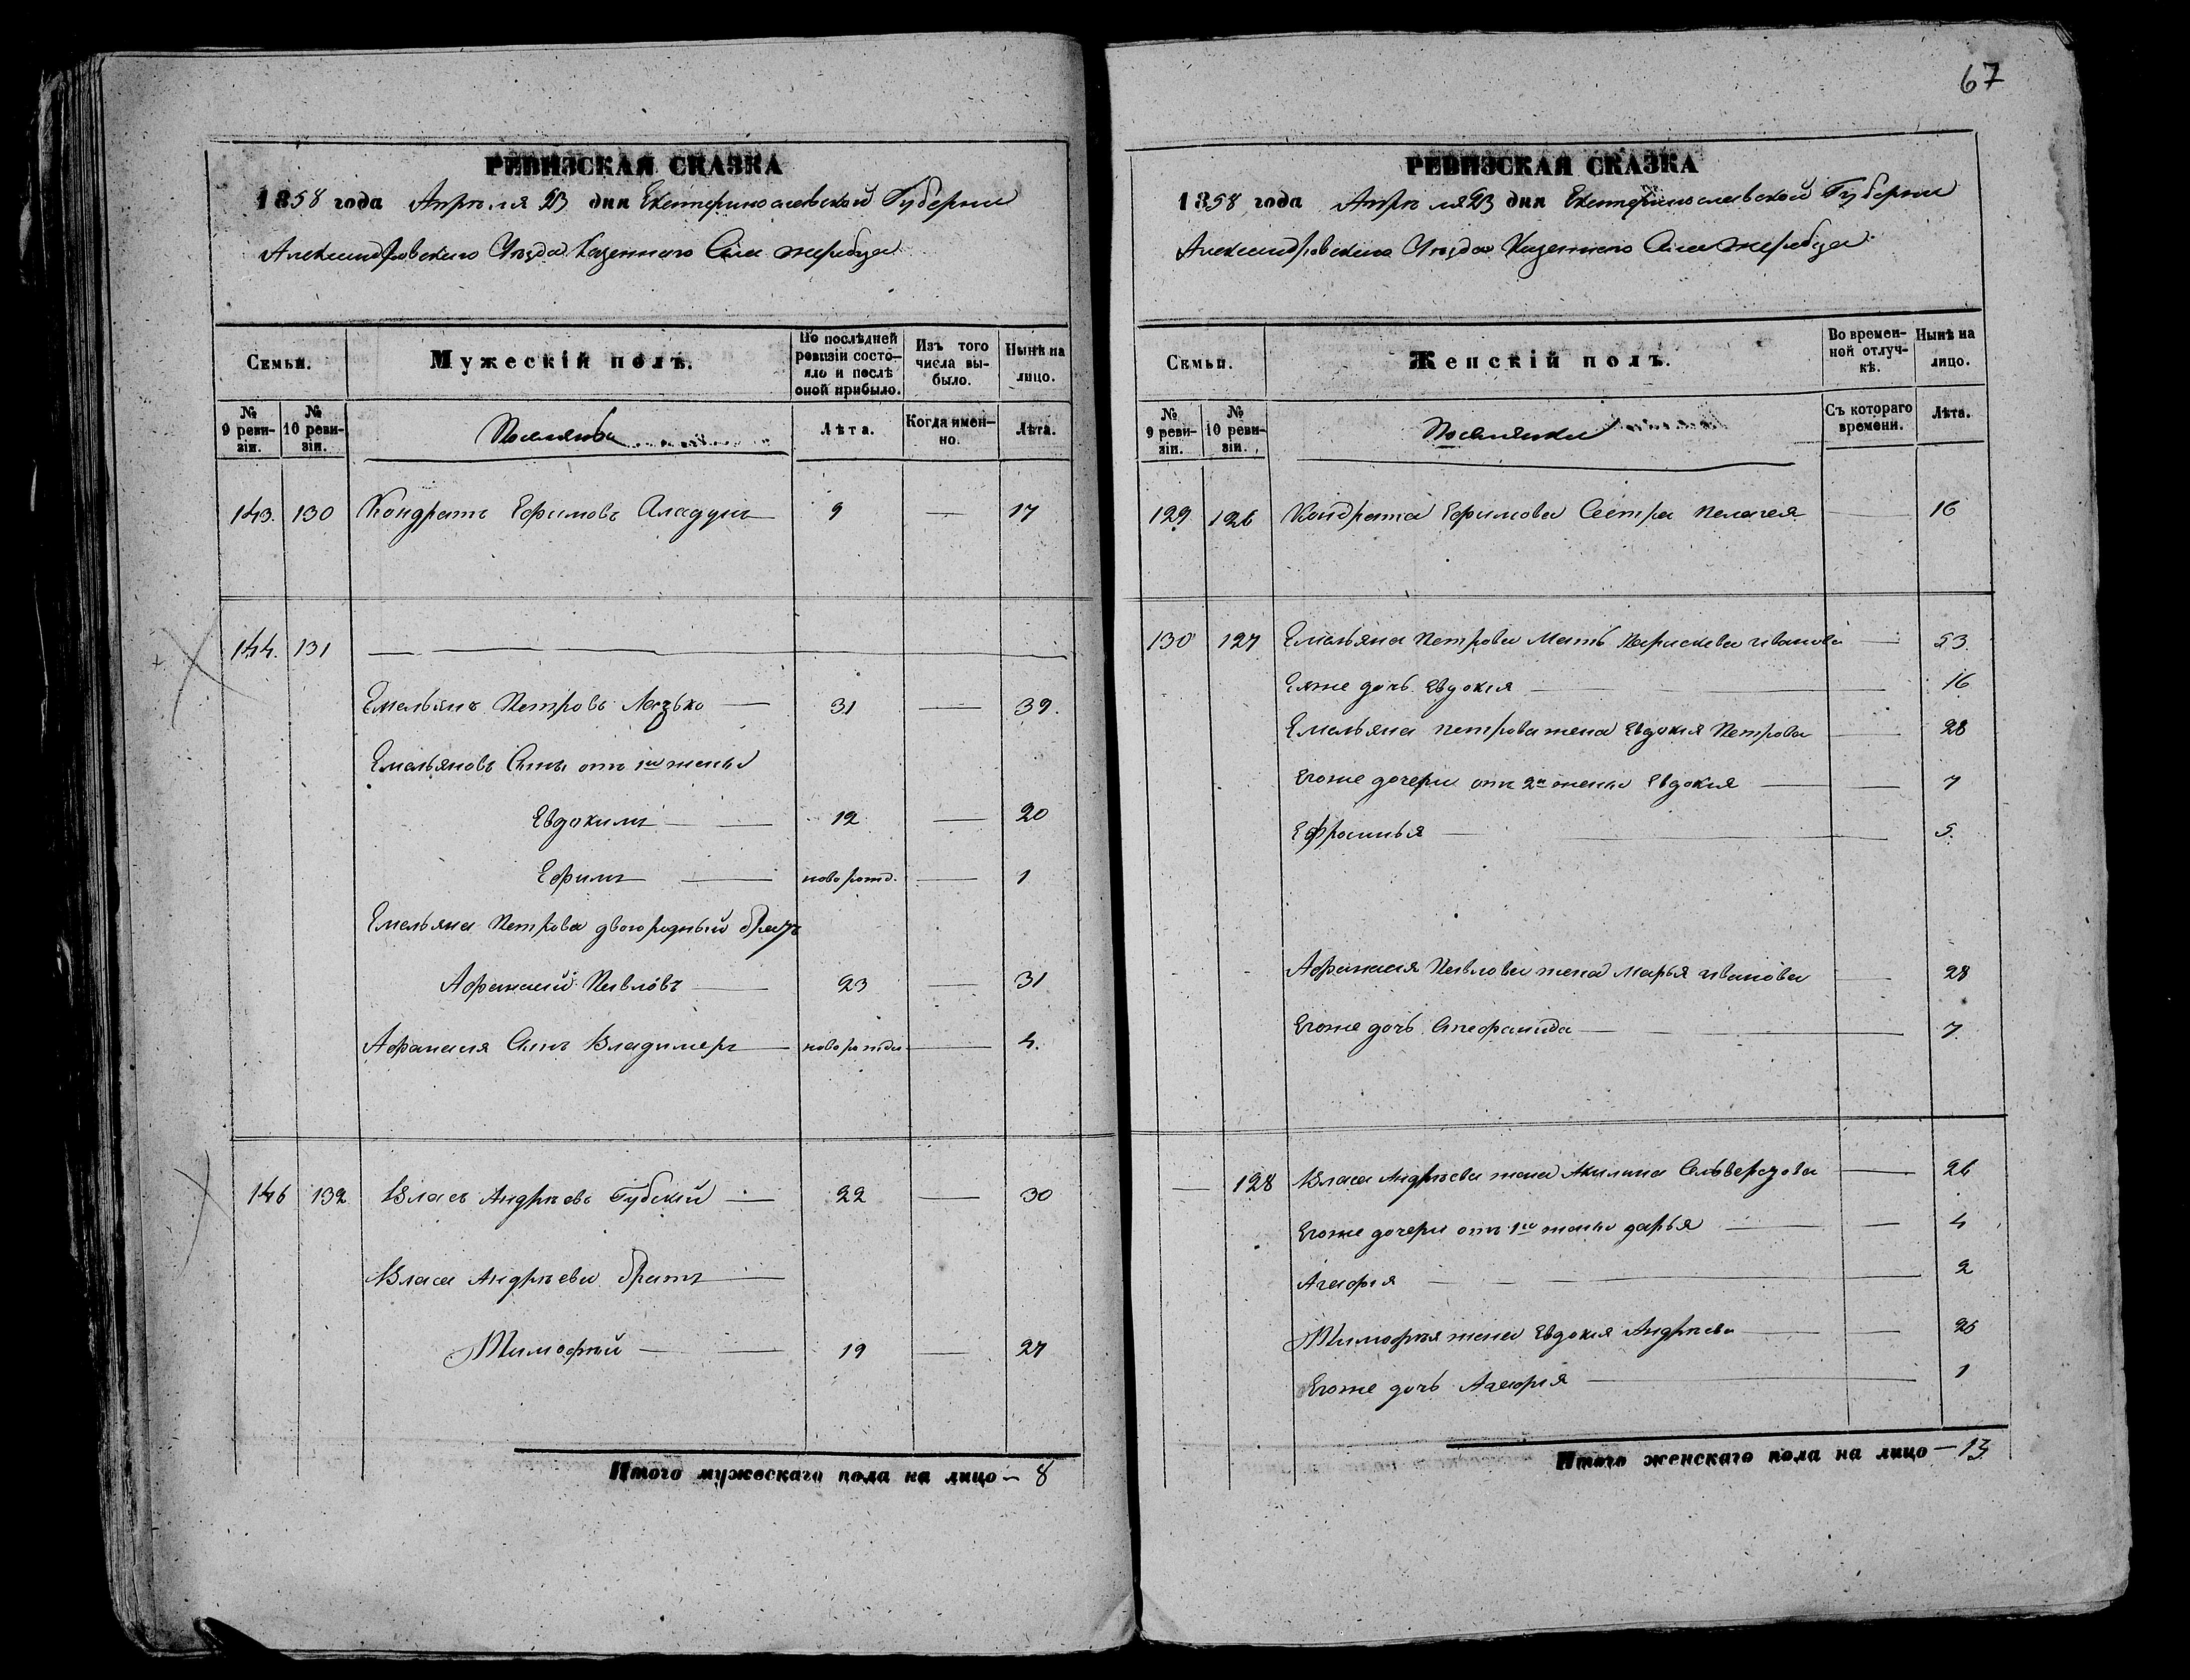 67
РЕВИЗСКАЯ СКАЗКА
1858 года Апрѣля 23 дня Екатеринославской Губерніи
Александровскаго Уѣзда Казеннаго Села Жеребца
Семьи.
Мужескій полъ.
По послѣдней ревизіи состо-
яло и послѣ
оной прибыло.
Изъ того
числа вы-
было.
Нынѣ на
лицо.
№
9 реви-
зіи.
№
10 реви-
зіи.
Поселяне
Лѣта.
Когда имен-
но.
Лѣта.
143. 130 Кондратъ Ефимовъ 9 — 17
144. 131 —
Емельянъ Петровъ — 31 — 39.
Емельяновъ Сынъ отъ 1й жены
Евдокимъ — 12 — 20
Ефимъ — новорожд. — 1
Емельяна Петрова двоюродный братъ
Афанасій Павловъ — 23 — 31
Афанасія Сынъ Владимеръ — новорожден — 4.
146 132 Власъ Андрѣевъ Губскій — 22 — 30
Власа Андрѣева братъ —
Тимофѣй — 19 — 27
Итого мужескаго пола на лицо — 8
РЕВИЗСКАЯ СКАЗКА
1858 года Апрѣля 23 дня Екатеринославской Губерніи
Александровскаго Уѣзда Казеннаго Села Жеребца
Семьи.
Женскій полъ.
Во времен-
ной отлуч-
кѣ.
Нынѣ на
лицо.
№
9 реви-
зіи.
№
10 реви-
зіи.
Поселянки
Съ котораго
времени.
Лѣта.
129 126 Кондрата Ефимова Сестра Пелагея — 16
130 127 Емельяна Петрова Мать Параскева Иванова — 53.
Еяже дочь Евдокія — 16
Емельяна Петрова жена Евдокія Петрова — 28
Егоже дочери отъ 2й жены Евдокія — 7
Ефросинья — 5.
Афанасія Павлова жена Марья Иванова — 28
Егоже дочь Стефанида — 7.
— 128 Власа Андрѣева жена Акилина — 26
Егоже дочери отъ 1й жены Дарья — 4
Агафія — 2
Тимофѣя жена Евдокія Андрѣева — 25
Егоже дочь Агафія — 1
Итого женскаго пола на лицо — 13